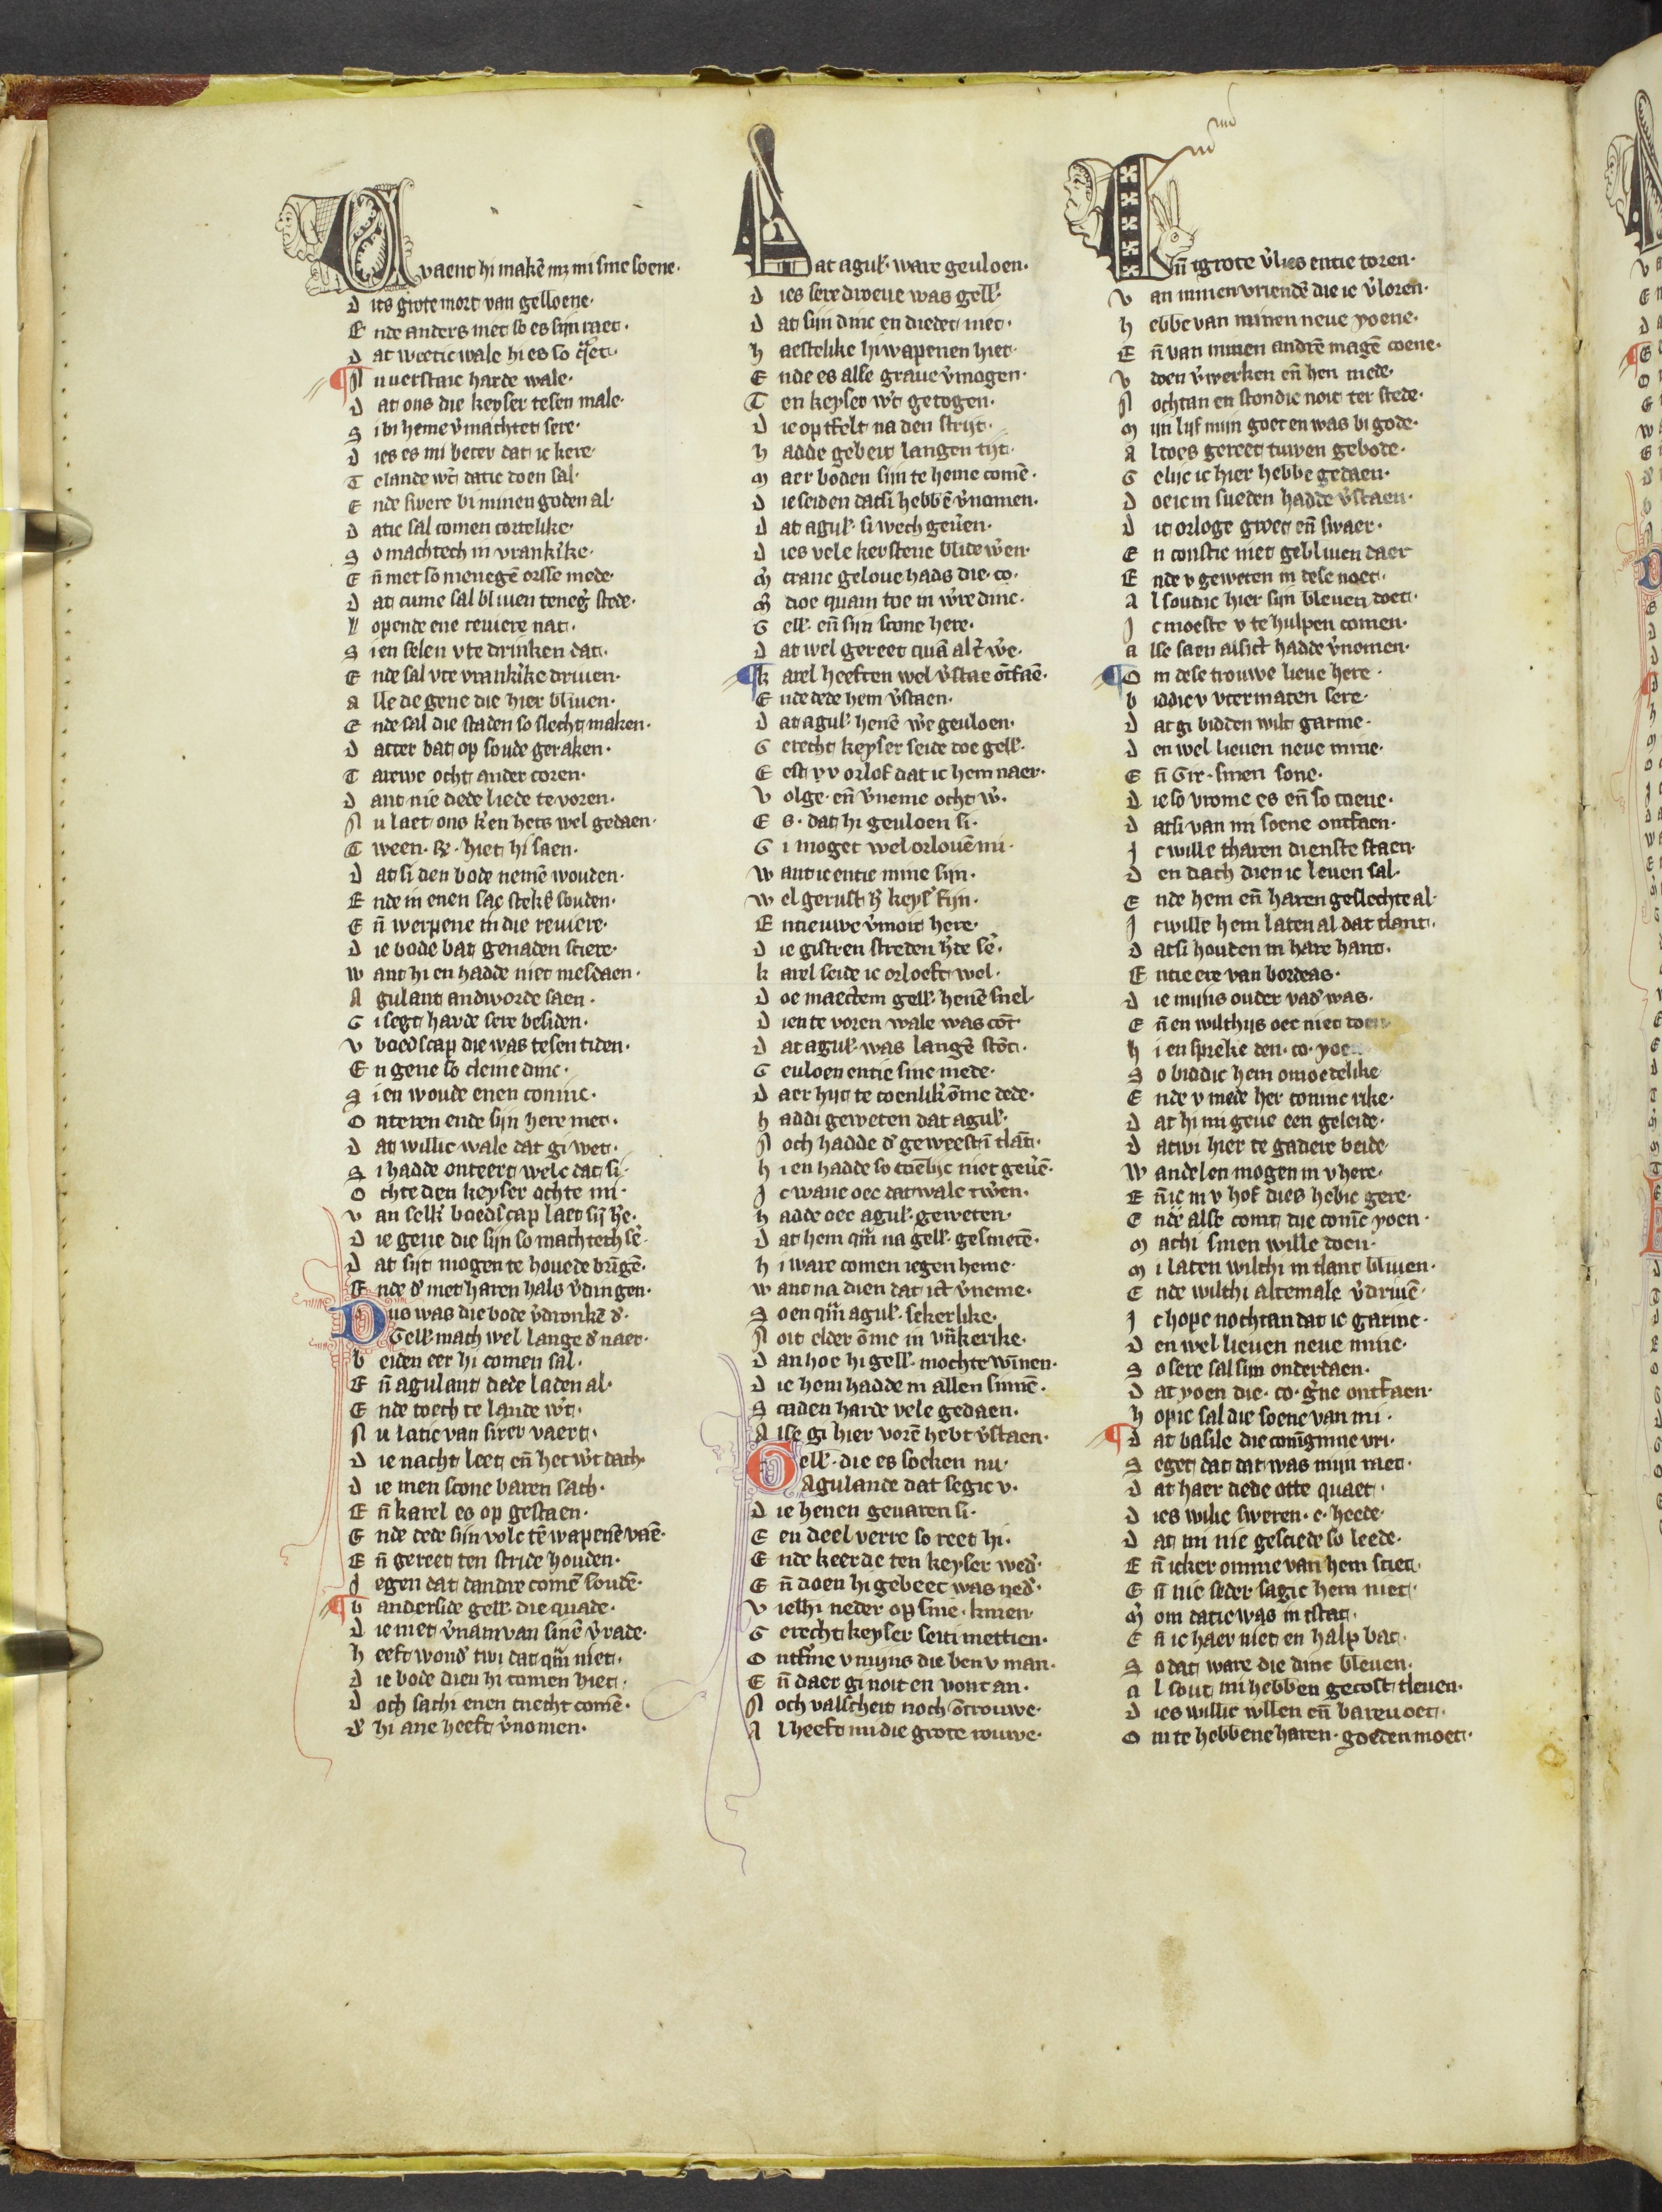 Waent hi makē mʒ mi sine soene·
Dits grote mort van gelloene·
Ende anders niet so es sijn raet·
Dat weetic wale hi es so q̃et·
Nu verstaic harde wale·
Dat ons die keyser tesen male·
Si bi heme v̓machtet sere·
Dies es mi beter dat ic kere·
Te lande wt̓ datic doen sal·
Ende swere bi minen goden al·
Datic sal comen cortelike·
So machtech in vrankrike·
Eñ met so menegē orsse mede·
Dat cume sal bliuen teneg̓ stede·
Lopende ene reuiere nat·
Sien selen vte drinken dat·
Ende sal vte vrankrike driuen·
Alle de gene die hier bliuen·
Ende sal die staden so slecht maken·
Datter bat op soude geraken·
Tarwe ocht ander coren·
Dant nie dede liede te voren·
Nu laet ons k̓en hets wel gedaen·
Tween· R̃· hiet hi saen·
Dat si den bode nemē wouden·
Ende in enen sac stek̃ souden·
Eñ werpene in die reuiere·
Die bode bat genaden sciere·
Want hi en hadde niet mesdaen·
Agulant andworde saen·
Gi segt harde sere besiden·
V boedscap die was tesen tiden·
En gene so cleine dinc·
Sien woude enen coninc·
Onteren ende sijn here met·
Dat willic wale dat gi wet·
Si hadde onteert welc dat si·
Ochte den keyser ochte mi·
Van selk̓ boedscap laet sij h̓e·
Die gene die sijn so machtech sē·
Dat sijt mogen te houede brīgē·
Ende d̓ met haren hals v̓dingen·
Dus was die bode v̓dronkē d̓·
Gell· mach wel lange d̓ naer·
Beiden eer hi comen sal·
Eñ agulant dede laden al·
Ende toech te lande wt̓·
Nu latic van sirer vaert·
Die nacht leet eñ het wt̓ dach·
Die men scone baren sach·
Eñ karel es op gestaen·
Ende dede sijn volc tē wapenē vaē·
Eñ gereet ten stride houden·
Jegen dat dandre comē soudē·
Vanderside gell· die quade·
Die niet v̓nam van sinē v̓rade·
Heeft wond̓ twi dat q̃m niet·
Die bode dien hi comen hiet·
Doch sach i enen cnecht comē·
D̓ hi ane heeft v̓nomen·
Dat agul̓· ware geuloen·
Dies sere droeue was gell̓·
Dat sijn dinc en diedet niet·
Haestelike hi wapenen hiet·
Ende es alse graue v̓mogen·
Ten keyser wt̓ getogen·
Die op tfelt na den strijt·
Hadde gebeit langen tijt·
Maer boden sijn te heme comē·
Die seiden datsi hebbē v̓nomen·
Dat agul̓· si wech geuren·
Dies vele kerstene blide w̓en·
M̓ cranc geloue hads die· co·
M̓ doe quam toe in w̓re dinc·
Gell̓· eñ sijn scone here·
Dat wel gereet quā alt̓ w̓e·
Karel heeften wel v̓stae ōtfaē·
Ende dede hem v̓staen·
Dat agul̓· henē w̓e geuloen·
Gerecht keyser seide doe gell̓·
Eest v v orlof dat ic hem naer·
Volge· eñ v̓neme ocht w̓·
Es· dat hi geuloen si·
Gi moget wel orlouē mi·
Want ic entie mine sijn·
Wel gerust h̓ keys̓ fijn·
Entieuwe v̓moit here·
Die gistren streden h̓de sē·
Karel seide ic orloeft wel·
Doe maectem gell̓· henē snel·
Dien te voren wale was cōt
Dat agul̓· was langē stōt·
Geuloen entie sine mede·
Daer hijt te coenlik̓ ōme dede·
Haddi geweten dat agul̓·
Noch hadde d̓ geweest ī tlāt·
Hi en hadde so coēlijc niet geūē·
Jc wane oec dat wale tw̓en·
Hadde oec agul̓· geweten·
Dat hem q̃m na gell̓· gesmetē·
Hi ware comen iegen heme·
Want na dien dat ict v̓neme·
Soen q̃m agul̓· sekerlike·
Noit elder ōme in vr̃kerike·
Dan hoe hi gell̓· mochte wīnen·
Die hem hadde in allen sinnē·
Scaden harde vele gedaen·
Alse gi hier vorē hebt v̓staen·
Gell̓· die es soeken nu·
Agulande dat segic v·
Die henen geuaren si·
Een deel verre so reet hi·
Ende keerde ten keyser wed̓·
Eñ doen hi gebeet was ned̓·
Viel hi neder op sine· knien·
Gerecht keyser seiti mettien·
Ontfine v mijns die ben v man·
Eñ daer gi noit en vont an·
Noch valscheit noch ōtrouwe·
Al heeft mi die grote rouwe·
Eñ tgrote v̓lies entie toren·
Van minen vriendē die ic v̓loren·
Hebbe van minen neue yoene·
Eñ van minen andrē magē coene·
V doen v̓werken eñ hen mede·
Nochtan en stondic noit ter stede·
Mijn lijf mijn goet en was bi gode·
Altoes gereet tuwen gebode·
Gelijc ic hier hebbe gedaen·
Doe ic in sueden hadde v̓staen·
Dit orloge groet eñ swaer·
En constic niet gebliuen daer
Ende v geweten in dese noet·
Al soudic hier sijn bleuen doet·
Jc moeste v te hulpen comen·
Alse saen alsict hadde v̓nomen·
Om dese trouwe lieue here·
Biddic v vtermaten sere·
Dat gi bidden wilt garine·
Den wel lieuen neue mine·
Eñ Gir· sinen sone·
Die so vrome es eñ so coene·
Datsi van mi soene ontfaen·
Jc wille tharen dienste staen·
Den dach dien ic leuen sal·
Ende hem eñ haren geslechte al·
Jc wille hem laten al dat tlant·
Datsi houden in hare hant·
Entie ere van bordeas·
Die mijns ouder vad̓ was·
Eñ en wilthijs oec niet doen
Hi en spreke den· co· yoe
So biddic hem omoedelike
Ende v mede her coninc rike·
Dat hi mi geue een geleide·
Dat wi hier te gadere beide
Wandelen mogen in v here·
Eñ ic in v hof dies hebic gere·
Ende alse comt die conīc yoen·
Machi sinen wille doen·
Mi laten wilthi in tlant bliuen·
Ende wilthi altemale v̓driuē·
Jc hope nochtan dat ic garine·
Den wel lieuen neue mine·
So sere sal sijn onderdaen·
Dat yoen die· co· g̓ne ontfaen·
Hopic sal die soene van mi·
Dat basile die conīginne vri·
Seget dat dat was mijn raet·
Dat haer dede otte quaet·
Dies wilic sweren· c· heede·
Dat mi nie gesciede so leede·
Eñ icker omme van hem sciet·
Eñ nie seder sagic hem niet·
M̓ om datic was in tstat·
Eñ ic haer niet en halp bat·
So dat ware die dinc bleuen·
Al sout mi hebben gecost tleuen·
Dies willic wllen eñ barevoet·
Om te hebbene haren· goeden moet·